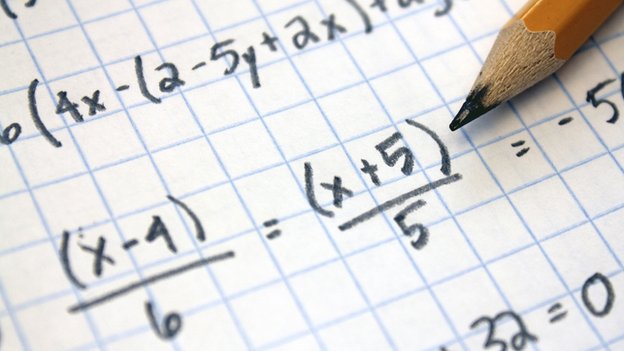 6(4x-(2-5y+2x)+
= -5
(x-4)/6 = (x+5)/5
32=0